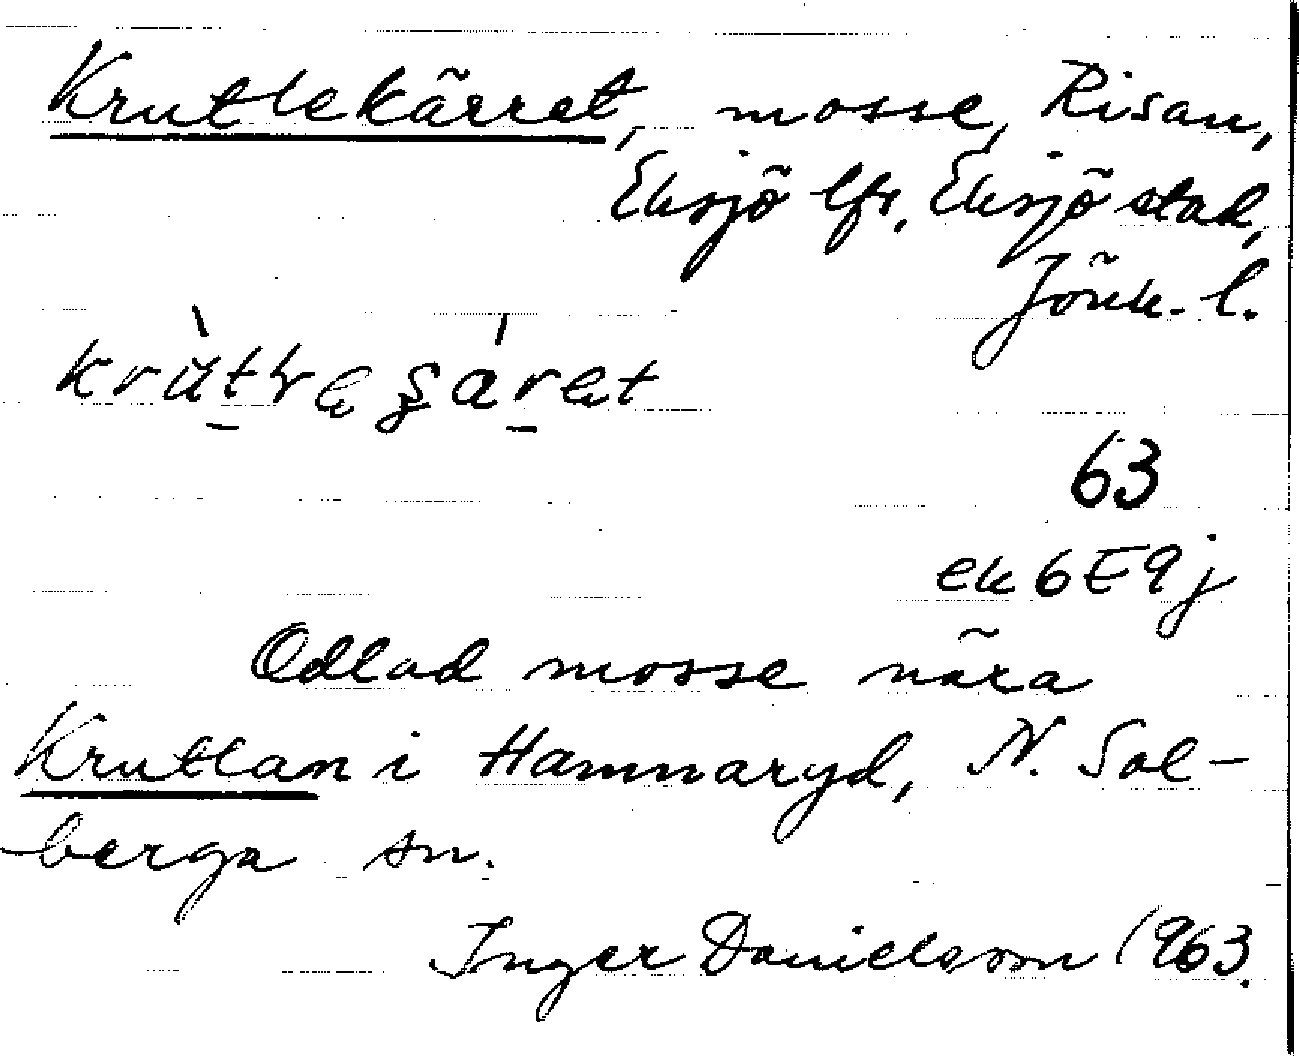 Krutlekärret, mosse, Risan,
Eksjö lfs, Eksjö stad,
Jönk. l.
63
ek 6E9j
Odlad mosse nära
Krutlan i Hamnaryd, N. Sol-
berga sn.
Inger Danielsson 1963.